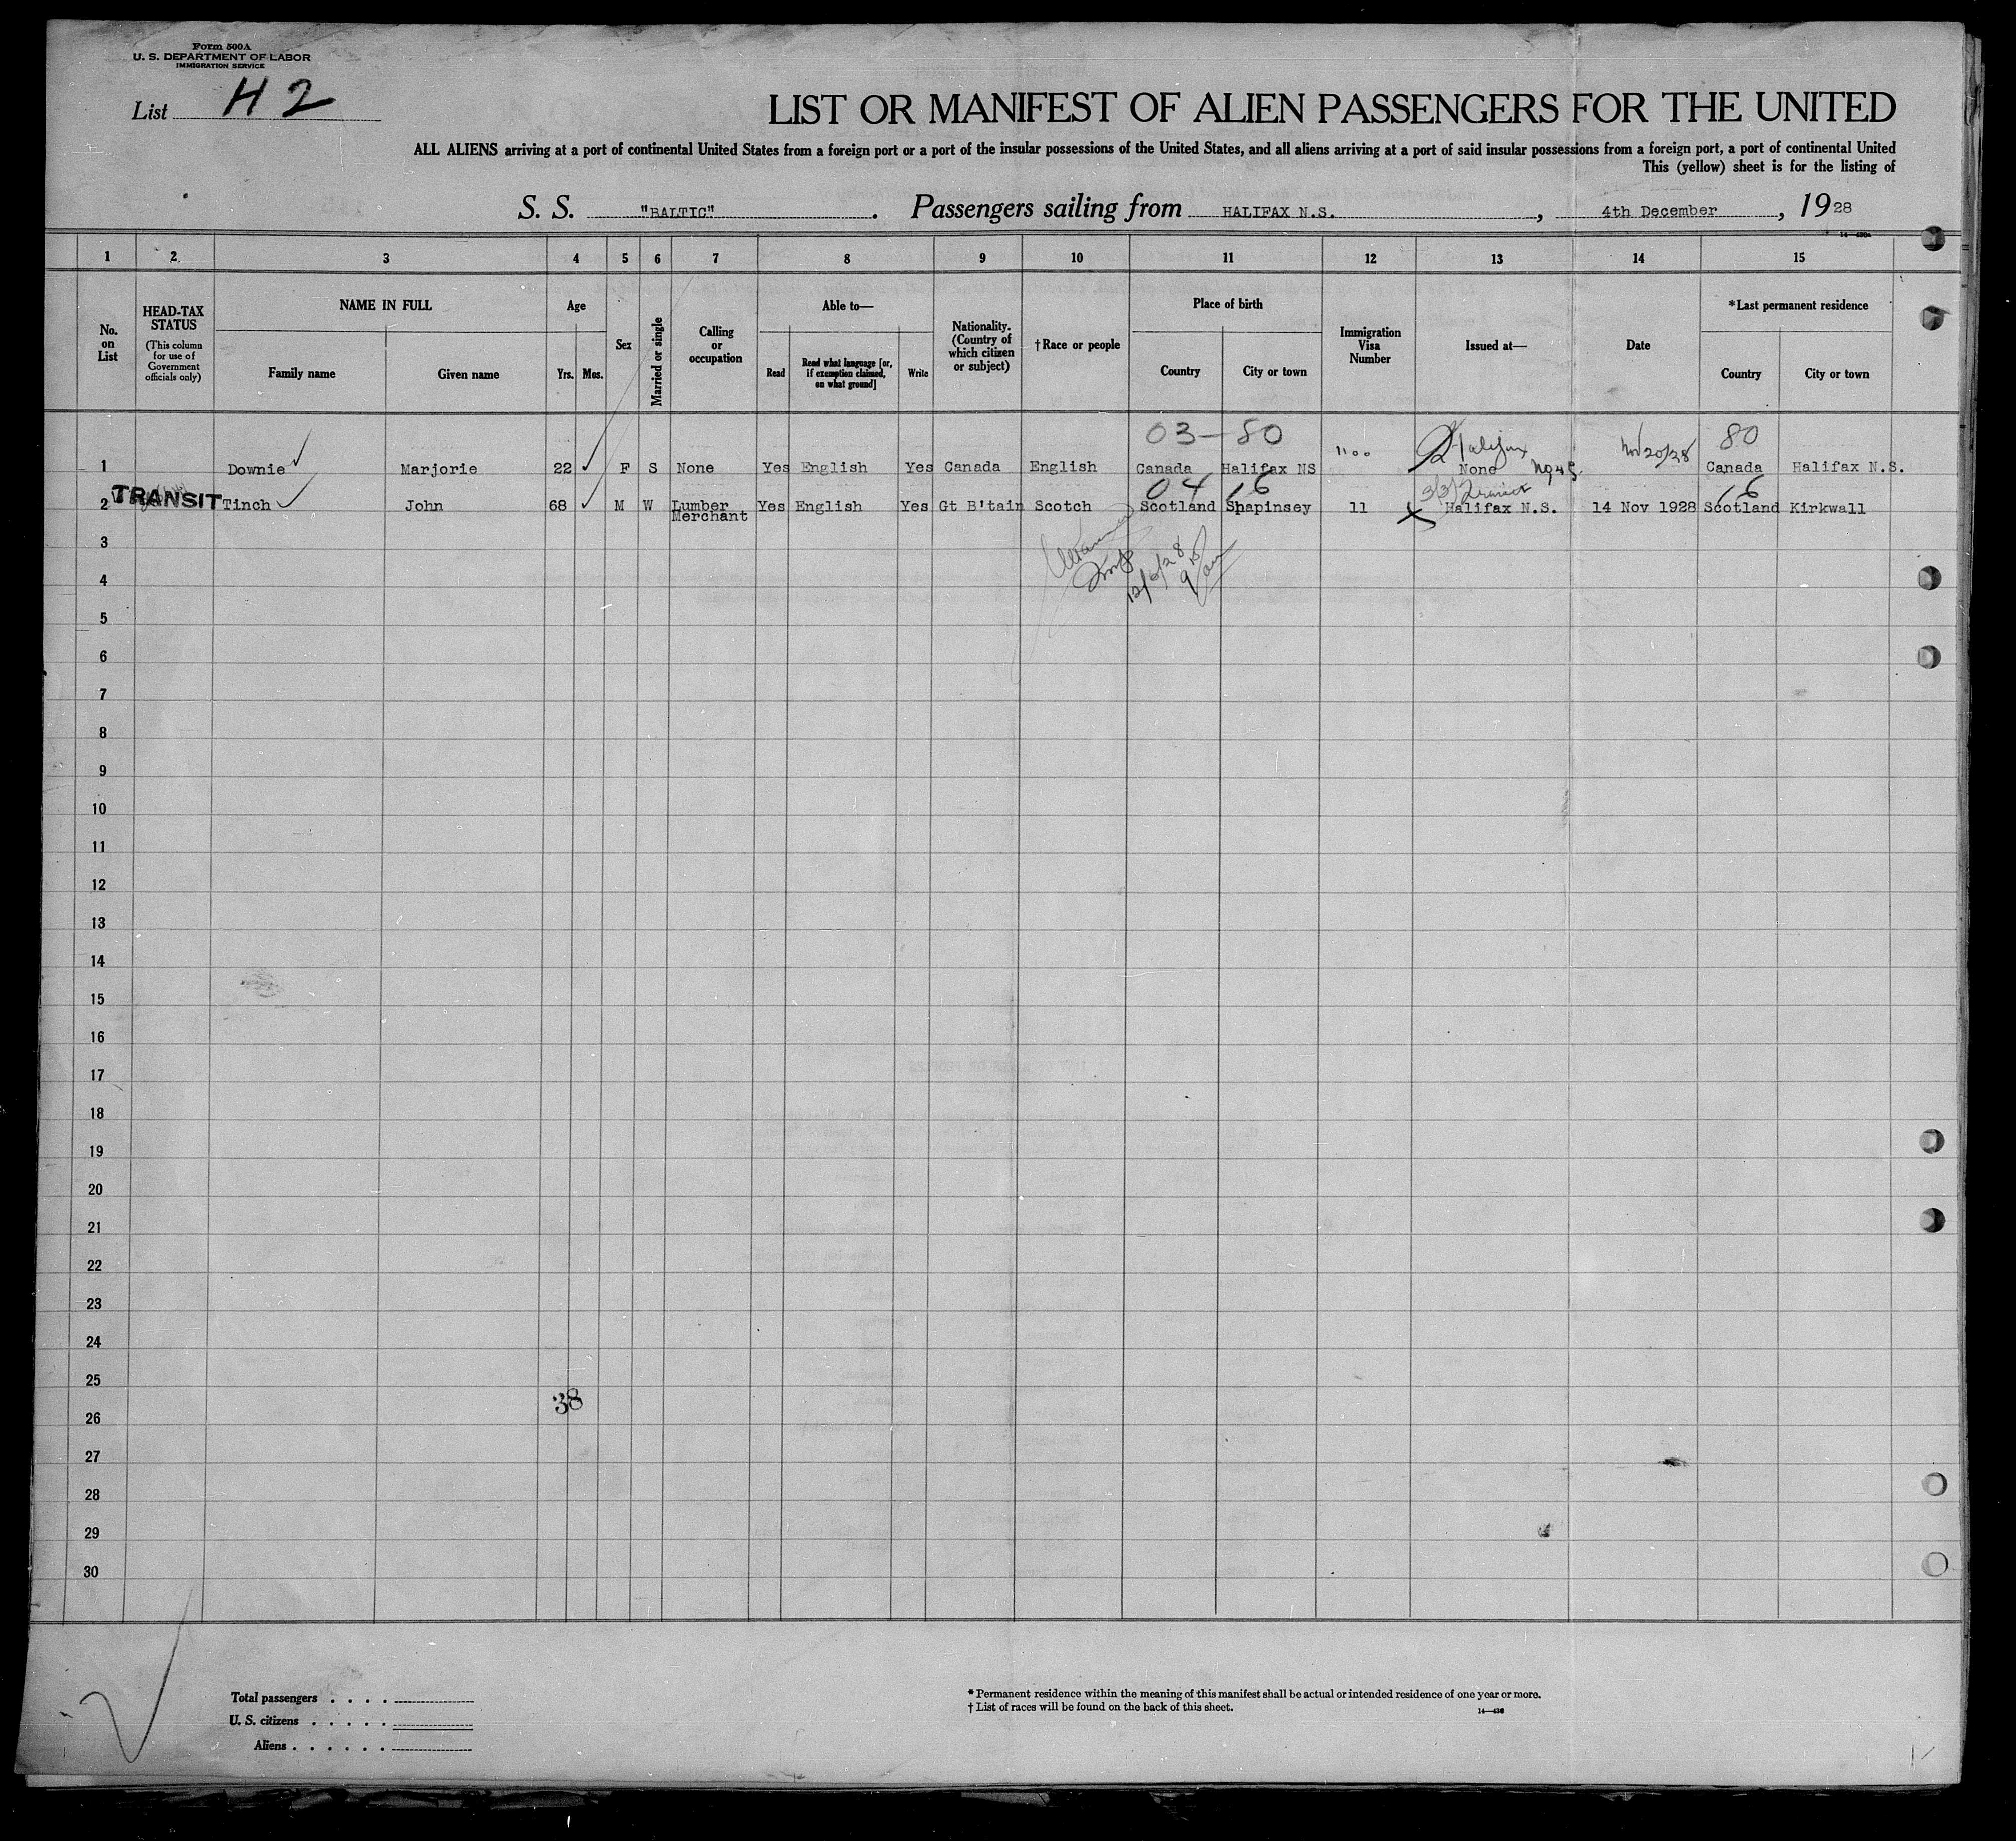 Form 500A
U. S. DEPARTMENT OF LABOR
IMMIGRATION SERVICE
List H 2
LIST OR MANIFEST OF ALIEN PASSENGERS FOR THE UNITED
ALL ALIENS arriving at a port of continental United States from a foreign port or a port of the insular possessions of the United States, and all aliens arriving at a port of said insular possessions from a foreign port, a port of continental United
This (yellow) sheet is for the listing of
S. S. "BALTIC". Passengers sailing from HALIFAX N.S., 4th December, 1928
1 2 3 4 5 6 7 8 9 10 11 12 13 14 15
No. on List
HEAD-TAX STATUS (This column for use of Government officials only)
NAME IN FULL
Family name Given name
Age
Yrs. Mos.
Sex
Married or single
Calling or occupation
Able to—
Read Read what language [or, if exemption claimed, on what ground] Write
Nationality. (Country of which citizen or subject)
†Race or people
Place of birth
Country City or town
Immigration Visa Number
Issued at—
Date
*Last permanent residence
Country City or town
03—80 Halifax Nov 20/28 80
1 Downie Marjorie 22 F S None Yes English Yes Canada English Canada Halifax NS None Canada Halifax N.S.
04 16 16
2 TRANSIT Tinch John 68 M W Lumber Merchant Yes English Yes Gt B'tain Scotch Scotland Shapinsey 11 Halifax N.S. 14 Nov 1928 Scotland Kirkwall
3
12/6/28
4
5
6
7
8
9
10
11
12
13
14
15
16
17
18
19
20
21
22
23
24
25
38
26
27
28
29
30
Total passengers
U. S. citizens
Aliens
* Permanent residence within the meaning of this manifest shall be actual or intended residence of one year or more.
† List of races will be found on the back of this sheet.
14—430